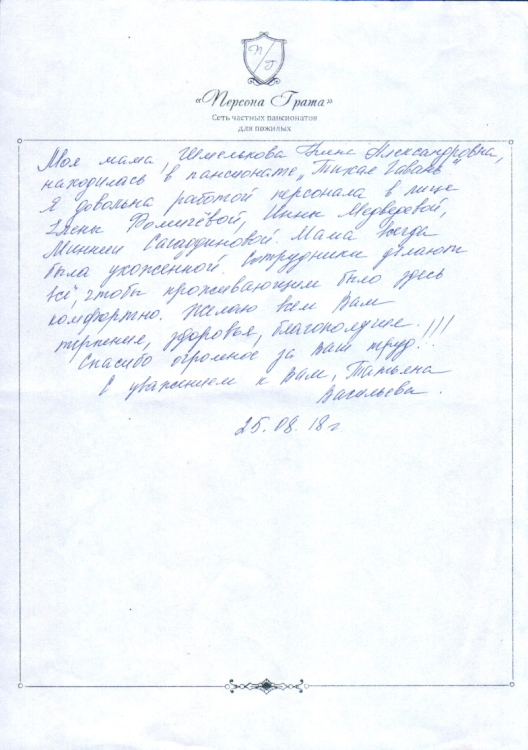 П Г
«Персона Грата»
Сеть частных пансионатов
для пожилых
Моя мама, Шмелькова Нина Александровна,
находилась в пансионате „Тихая Гавань"
Я довольна работой персонала в лице
Елены Фомичёвой, Инны Медведевой,
Миннии Сагадиновой. Мама всегда
была ухоженной. Сотрудники делают
всё, чтобы проживающим было здесь
комфортно. Желаю всем Вам
терпения, здоровья, благополучие.
Спасибо огромное за Ваш труд!!!
С уважением к Вам, Татьяна
Васильева.
25.08.18 г.